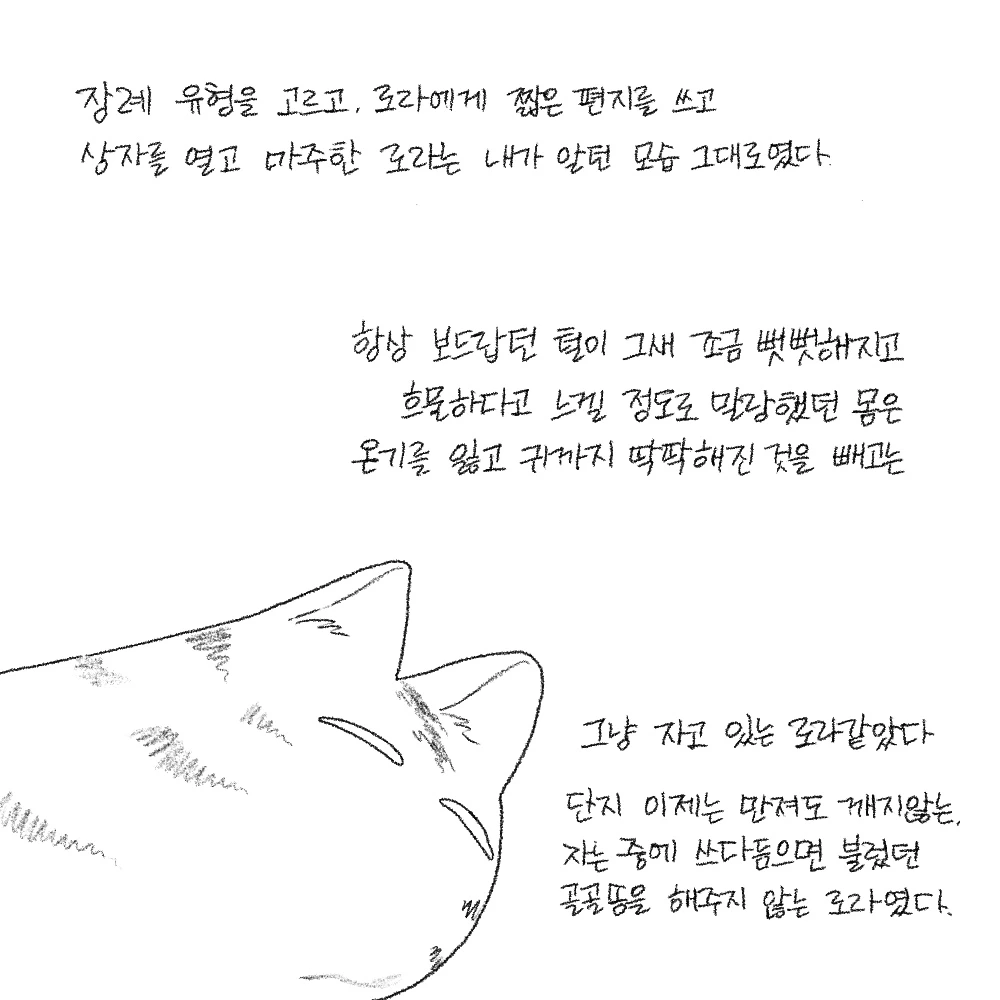 장례 유형을 고르고, 로라에게 짧은 편지를 쓰고
상자를 열고 마주한 로라는 내가 알던 모습 그대로였다.
항상 보드랍던 털이 그새 조금 뻣뻣해지고
흐물하다고 느낄 정도로 말랑했던 몸은
온기를 잃고 귀까지 딱딱해진 것을 빼고는
그냥 자고 있는 로라같았다
단지 이제는 만져도 깨지않는,
자는 중에 쓰다듬으면 불렀던
골골똥을 해주지 않는 로라였다.